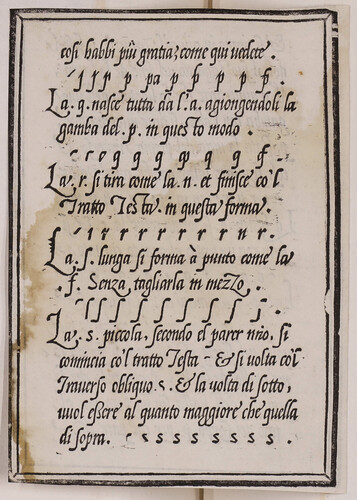 cosi habbi più gratia; come qui vedete.
ı ſ ſ ſ p pa p p p p p.
La .q. nasce tutta da l'.a. agiongendoli la
gamba del .p. in questo modo.
c o q q q q q q.
La .r. si tira come la .n. et finisce co'l
Tratto Testa. in questa forma.
ı r r r r r r n r.
La .ſ. lunga si forma à punto come la
.f. Senza tagliarla in mezZo.
ſ ſ ſ ſ ſ ſ ſ ſ ;
La .s. piccola, secondo el parer nr̃o, si
comincia co'l tratto Testa - & si volta co'l
Traverso obliquo .s. & la volta di sotto,
vuol eßere al quanto maggiore che quella
di sopra. s s s s s s s.